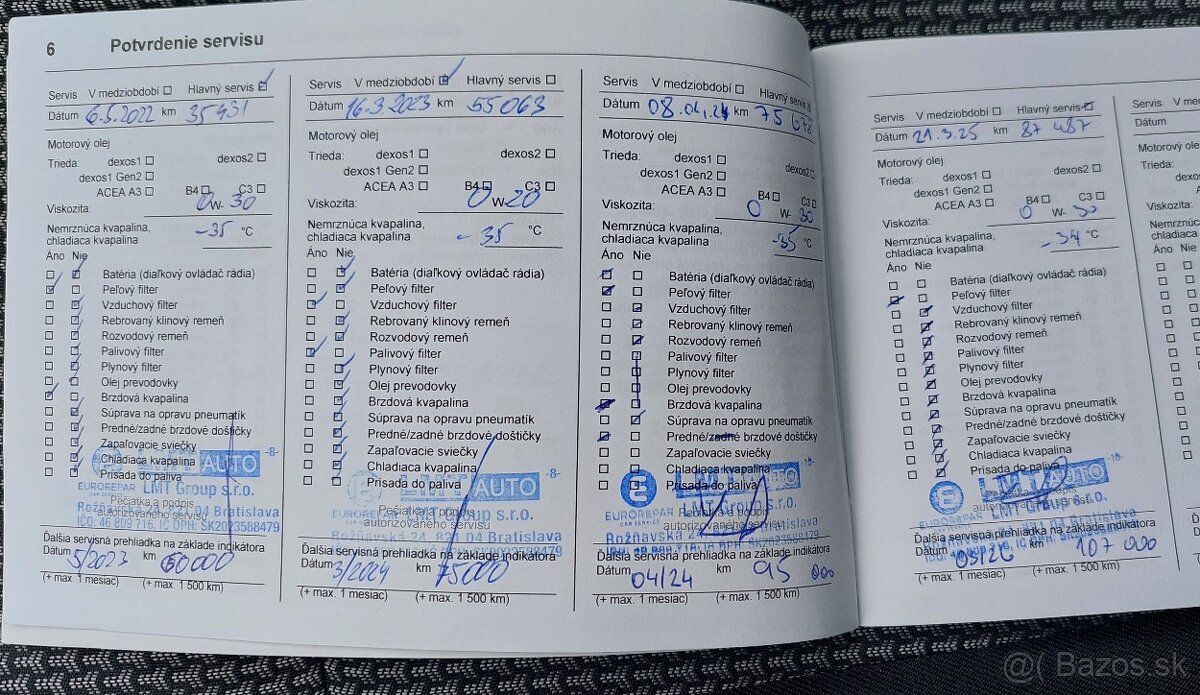 6 Potvrdenie servisu
Servis V medziobdobí Hlavný servis
Dátum 6.5.2022 km 35431
Motorový olej
Trieda: dexos1 dexos2
dexos1 Gen2
ACEA A3 B4 C3
Viskozita: 0 W- 30
Nemrznúca kvapalina,
chladiaca kvapalina -35 °C
Áno Nie
Batéria (diaľkový ovládač rádia)
Peľový filter
Vzduchový filter
Rebrovaný klinový remeň
Rozvodový remeň
Palivový filter
Plynový filter
Olej prevodovky
Brzdová kvapalina
Súprava na opravu pneumatík
Predné/zadné brzdové doštičky
Zapaľovacie sviečky
Chladiaca kvapalina
Prísada do paliva
LMT AUTO -8-
EUROREPAR
CAR SERVICE
LMT Group s.r.o.
Pečiatka a podpis
autorizovaného servisu
Rožňavská 24, 821 04 Bratislava
IČO: 46 809 716, IČ DPH: SK2023588479
Ďalšia servisná prehliadka na základe indikátora
Dátum 5/2023 km 60000
(+ max. 1 mesiac) (+ max. 1 500 km)
Servis V medziobdobí Hlavný servis
Dátum 16.3.2023 km 55063
Motorový olej
Trieda: dexos1 dexos2
dexos1 Gen2
ACEA A3 B4 C3
Viskozita: 0 W- 20
Nemrznúca kvapalina,
chladiaca kvapalina - 35 °C
Áno Nie
Batéria (diaľkový ovládač rádia)
Peľový filter
Vzduchový filter
Rebrovaný klinový remeň
Rozvodový remeň
Palivový filter
Plynový filter
Olej prevodovky
Brzdová kvapalina
Súprava na opravu pneumatík
Predné/zadné brzdové doštičky
Zapaľovacie sviečky
Chladiaca kvapalina
Prísada do paliva
LMT AUTO -8-
EUROREPAR
CAR SERVICE
LMT Group s.r.o.
Pečiatka a podpis
autorizovaného servisu
Rožňavská 24, 821 04 Bratislava
SK2023588479
Ďalšia servisná prehliadka na základe indikátora
Dátum 3/2024 km 75000
(+ max. 1 mesiac) (+ max. 1 500 km)
Servis V medziobdobí Hlavný servis
Dátum 08.04.24 km 75 678
Motorový olej
Trieda: dexos1 dexos2
dexos1 Gen2
ACEA A3 B4 C3
Viskozita: 0 W- 30
Nemrznúca kvapalina,
chladiaca kvapalina -35 °C
Áno Nie
Batéria (diaľkový ovládač rádia)
Peľový filter
Vzduchový filter
Rebrovaný klinový remeň
Rozvodový remeň
Palivový filter
Plynový filter
Olej prevodovky
Brzdová kvapalina
Súprava na opravu pneumatík
Predné/zadné brzdové doštičky
Zapaľovacie sviečky
Chladiaca kvapalina
Prísada do paliva
EUROREPAR
CAR SERVICE
LMT Group s.r.o.
Pečiatka a podpis
autorizovaného servisu
Bratislava
Ďalšia servisná prehliadka na základe indikátora
Dátum 04/24 km 95 000
(+ max. 1 mesiac) (+ max. 1 500 km)
Servis V medziobdobí Hlavný servis
Dátum 21.3.25 km 87 487
Motorový olej
Trieda: dexos1 dexos2
dexos1 Gen2
ACEA A3 B4 C3
Viskozita: 0 W- 30
Nemrznúca kvapalina,
chladiaca kvapalina -34 °C
Áno Nie
Batéria (diaľkový ovládač rádia)
Peľový filter
Vzduchový filter
Rebrovaný klinový remeň
Rozvodový remeň
Palivový filter
Plynový filter
Olej prevodovky
Brzdová kvapalina
Súprava na opravu pneumatík
Predné/zadné brzdové doštičky
Zapaľovacie sviečky
Chladiaca kvapalina
Prísada do paliva
EUROREPAR
CAR SERVICE
Pečiatka a podpis
autorizovaného servisu
Ďalšia servisná prehliadka na základe indikátora
Dátum 03/26 km 107 000
(+ max. 1 mesiac) (+ max. 1 500 km)
Servis
Dátum
Motorový
Trieda:
Viskozita:
Áno Nie
@( Bazos.sk